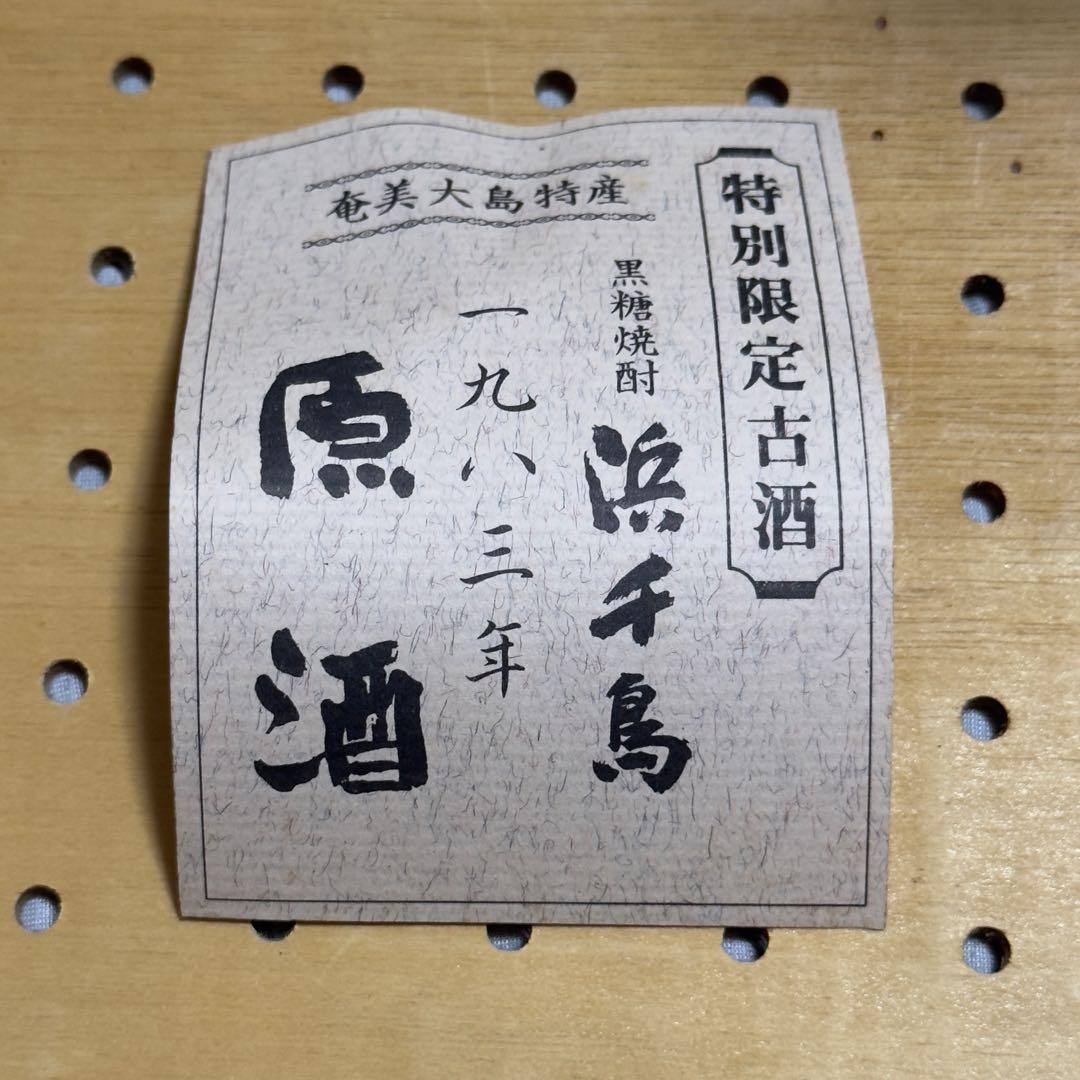 特別限定古酒
奄美大島特産
黒糖焼酎
浜千鳥
一九八三年
原酒